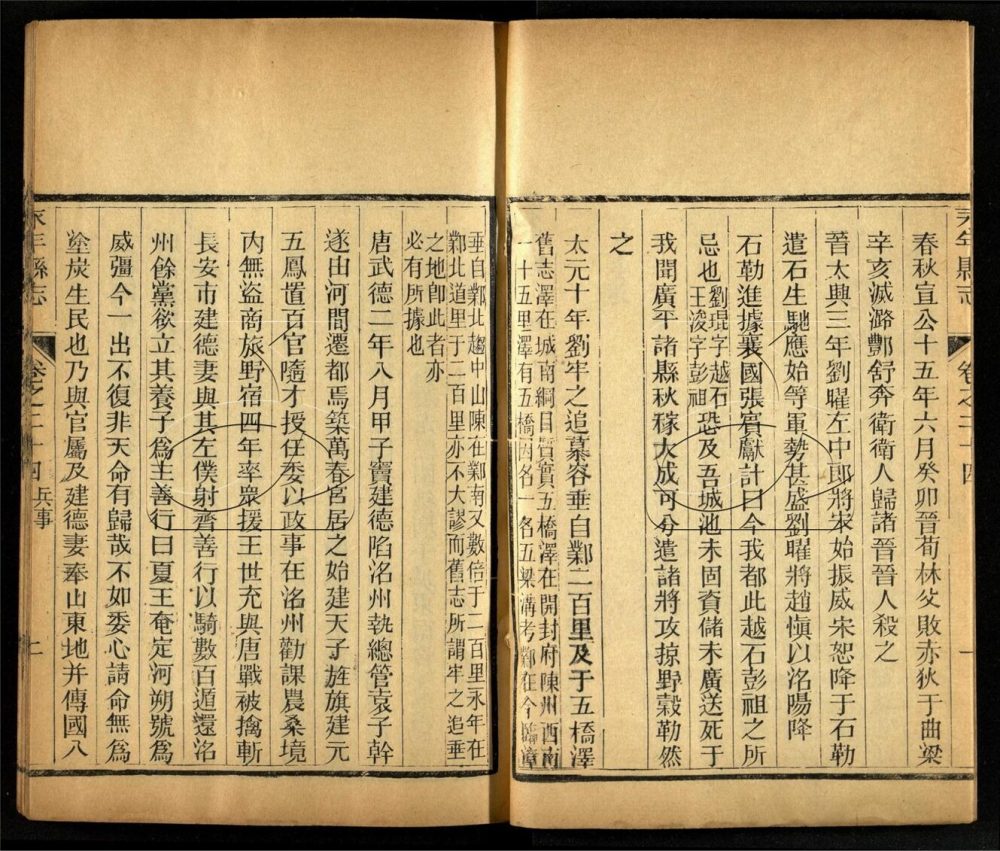 永年縣志
卷之二十四
一
春秋宣公十五年六月癸卯晉荀林父敗赤狄于曲梁
辛亥滅潞酆舒奔衛衛人歸諸晉晉人殺之
晉太興三年劉曜左中郎將宋始振威宋恕降于石勒
遣石生馳應始等軍勢甚盛劉曜將趙愼以洛陽降
石勒進據襄國張賓獻計曰今我都此越石彭祖之所
忌也劉琨字越石王浚字彭祖恐及吾城池未固資儲未廣送死于
我聞廣平諸縣秋稼大成可分遣諸將攻掠野穀勒然
之
太元十年劉牢之追慕容垂自鄴二百里及于五橋澤
舊志澤在城南綱目質實五橋澤在開封府陳州西南
一十五里澤有五橋因名一名五梁溝考鄴在今臨漳
垂自鄴北趨中山陳在鄴南又數倍于二百里永年在
鄴北道里于二百里亦不大謬而舊志所謂牢之追垂
之地卽此者亦
必有所據也
唐武德二年八月甲子竇建德陷洺州執總管袁子幹
遂由河間遷都焉築萬春宮居之始建天子旌旗建元
五鳳置百官隨才授任委以政事在洺州勸課農桑境
內無盜商旅野宿四年率衆援王世充與唐戰被擒斬
長安市建德妻與其左僕射齊善行以騎數百遁還洺
州餘黨欲立其養子爲主善行曰夏王奄定河朔號爲
威彊今一出不復非天命有歸哉不如委心請命無爲
塗炭生民也乃與官屬及建德妻奉山東地并傳國八
永年縣志
卷之二十四 兵事
七